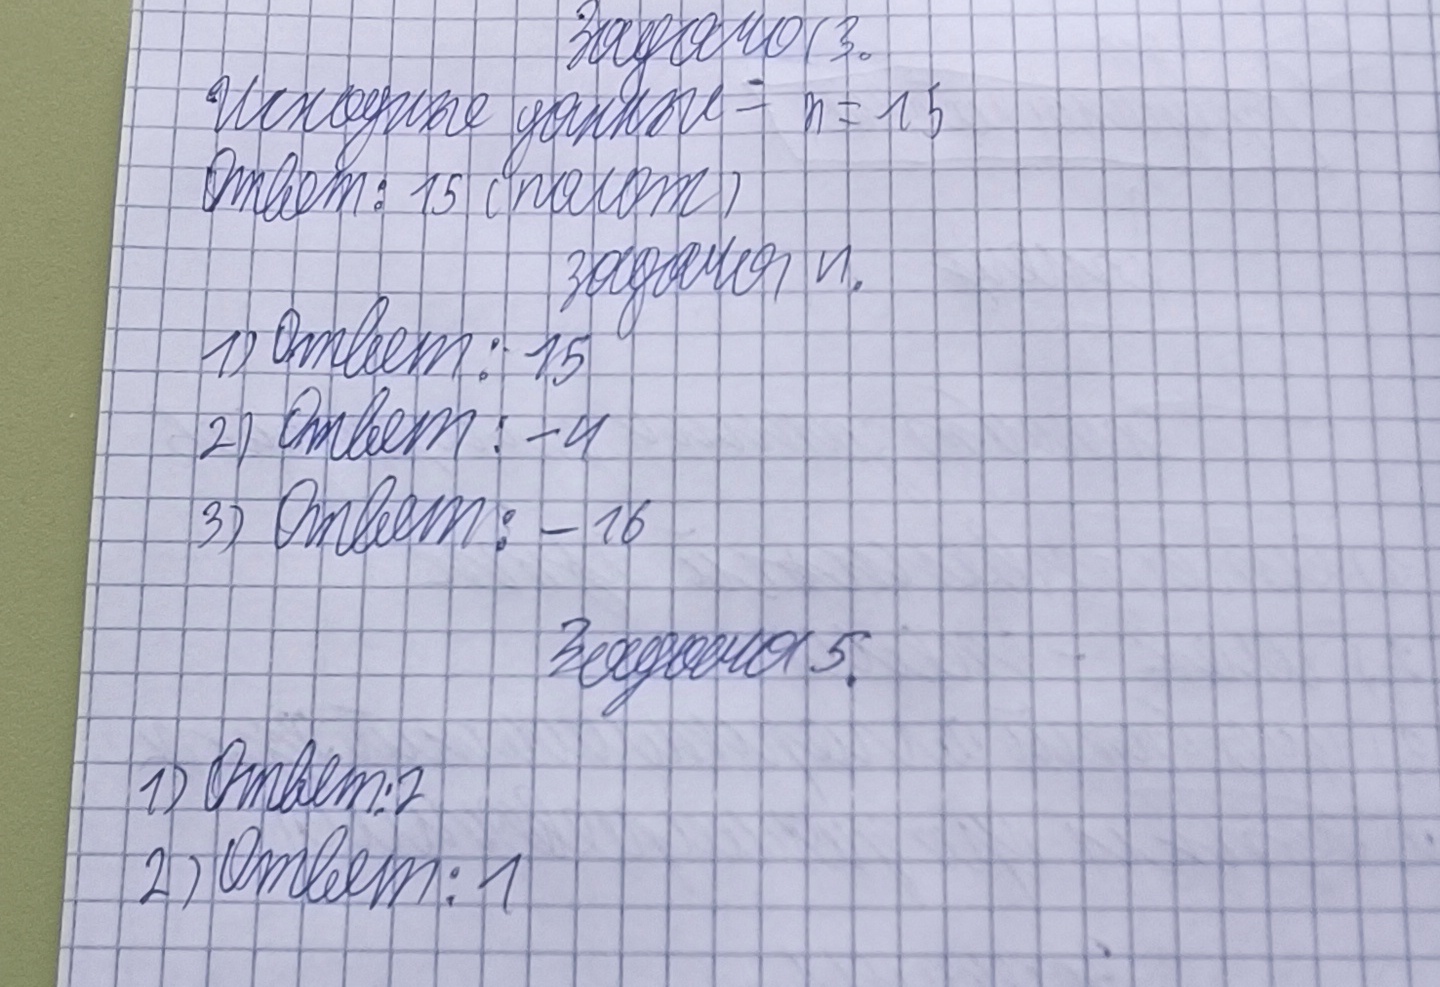 Задача 3.
Исходные данные - n = 15
Ответ: 15 (палат)
задача 4.
1) Ответ: 15
2) Ответ: -4
3) Ответ: -16
Задача 5.
1) Ответ: 2
2) Ответ: 1